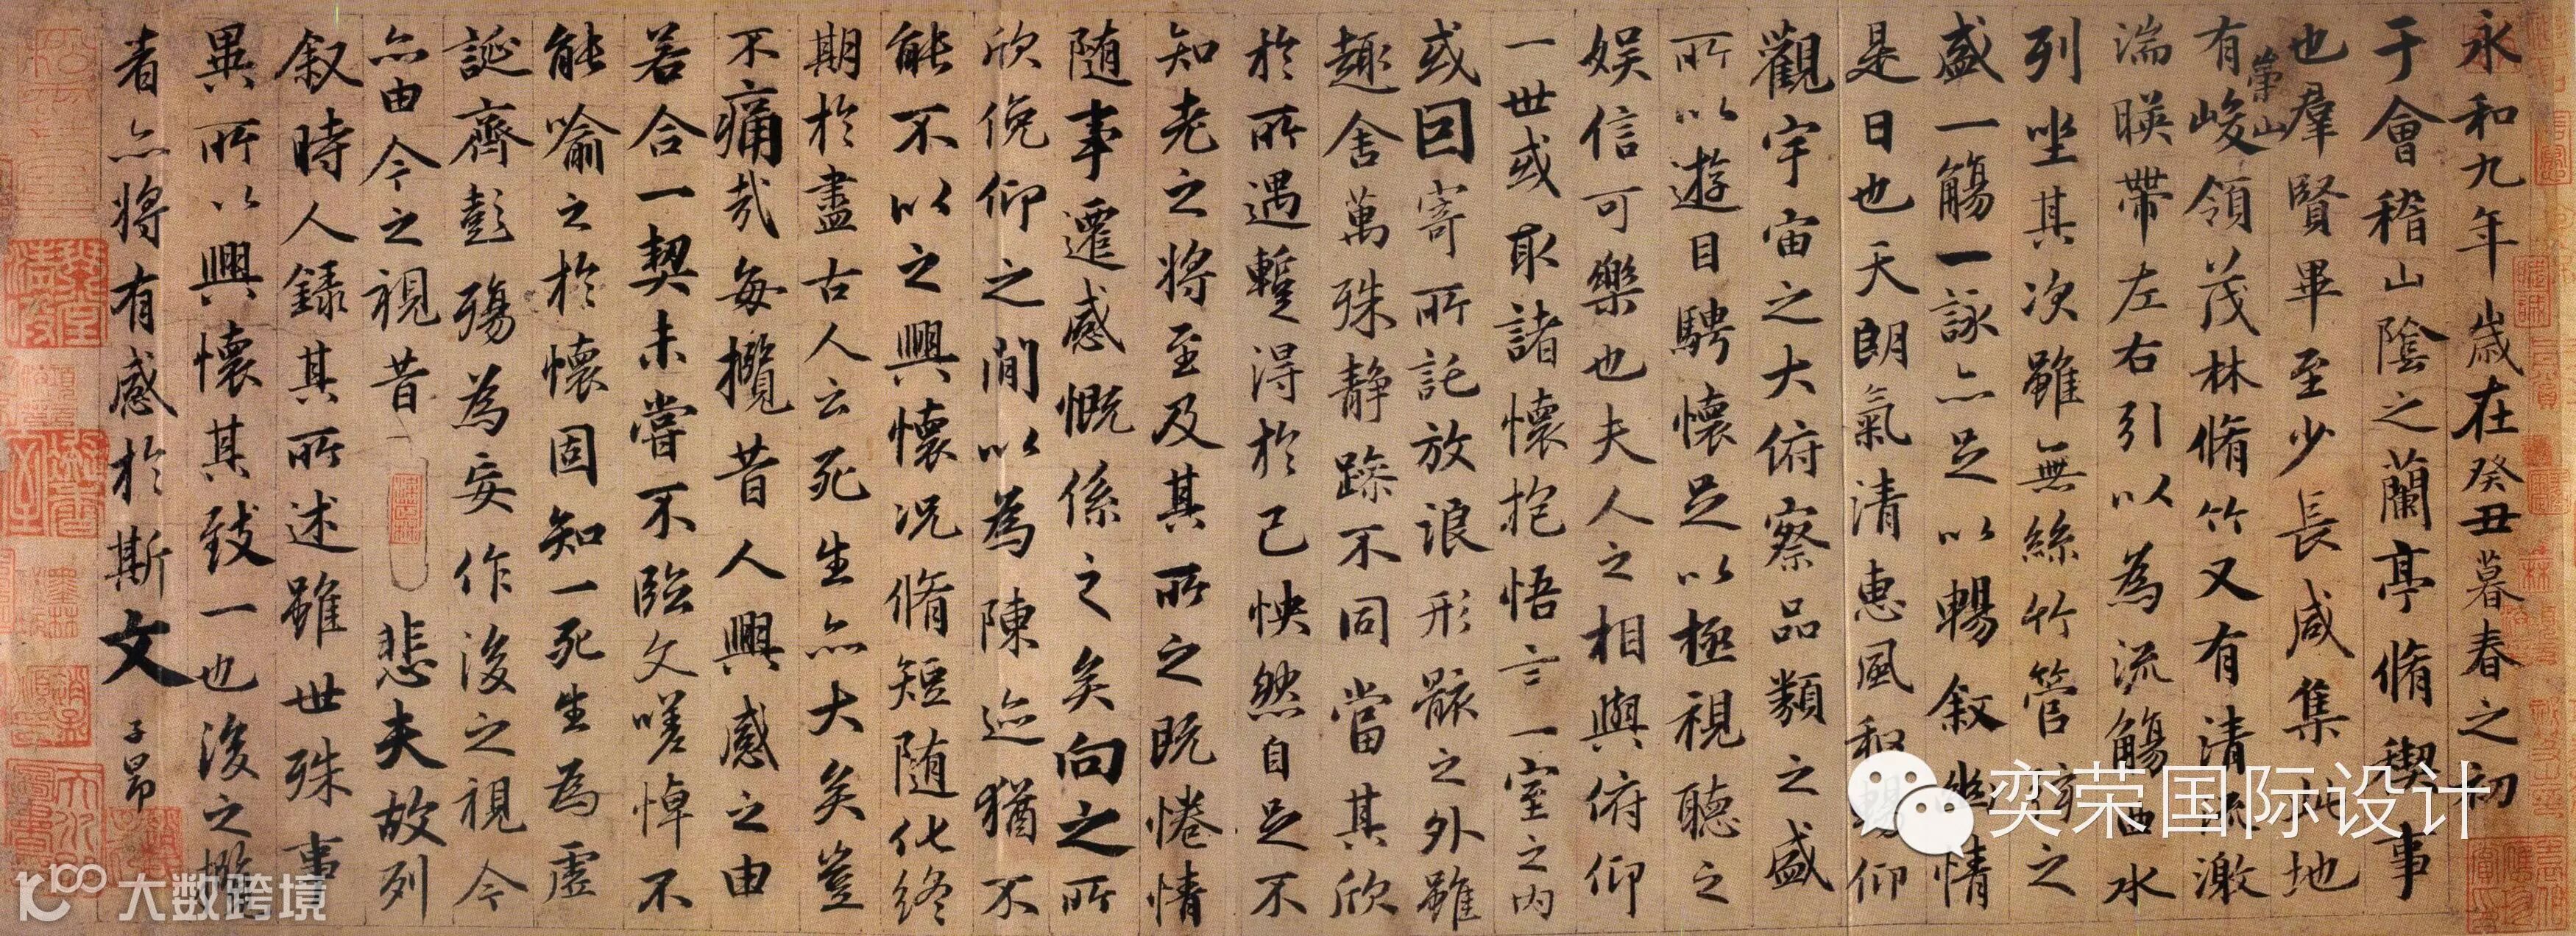 永和九年歲在癸丑暮春之初
于會稽山陰之蘭亭脩稧事
也羣賢畢至少長咸集此地
有崇山峻領茂林脩竹又有清流激
湍暎帶左右引以為流觴曲水
列坐其次雖無絲竹管弦之
盛一觴一詠亦足以暢叙幽情
是日也天朗氣清惠風和暢仰
觀宇宙之大俯察品類之盛
所以遊目騁懷足以極視聽之
娱信可樂也夫人之相與俯仰
一世或取諸懷抱悟言一室之内
或因寄所託放浪形骸之外雖
趣舍萬殊静躁不同當其欣
於所遇蹔得於己怏然自足不
知老之將至及其所之既惓情
随事遷感慨係之矣向之所
欣俛仰之閒以為陳迹猶不
能不以之興懷况脩短随化終
期於盡古人云死生亦大矣豈
不痛哉每攬昔人興感之由
若合一契未嘗不臨文嗟悼不
能喻之於懷固知一死生為虛
誕齊彭殤為妄作後之視今
亦由今之視昔悲夫故列
叙時人録其所述雖世殊事
異所以興懷其致一也後之攬
者亦將有感於斯文
子昂
奕荣国际设计
大数跨境